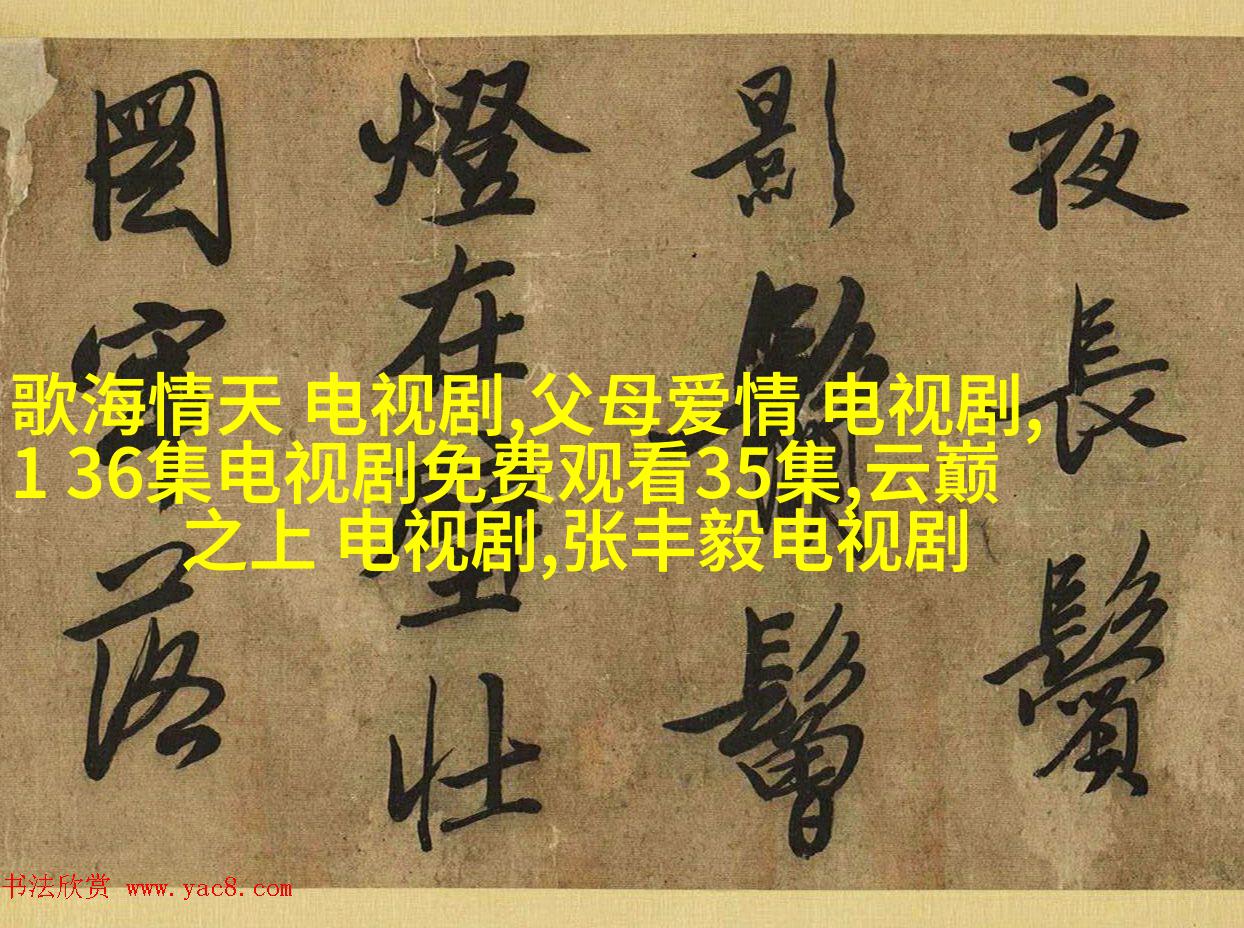 夜長鬢
影鬙
燈在壁壯
圖牢落
歌海情天 电视剧,父母爱情 电视剧,
1 36集电视剧免费观看35集,云巅
之上 电视剧,张丰毅电视剧
书法欣赏 www.yac8.com